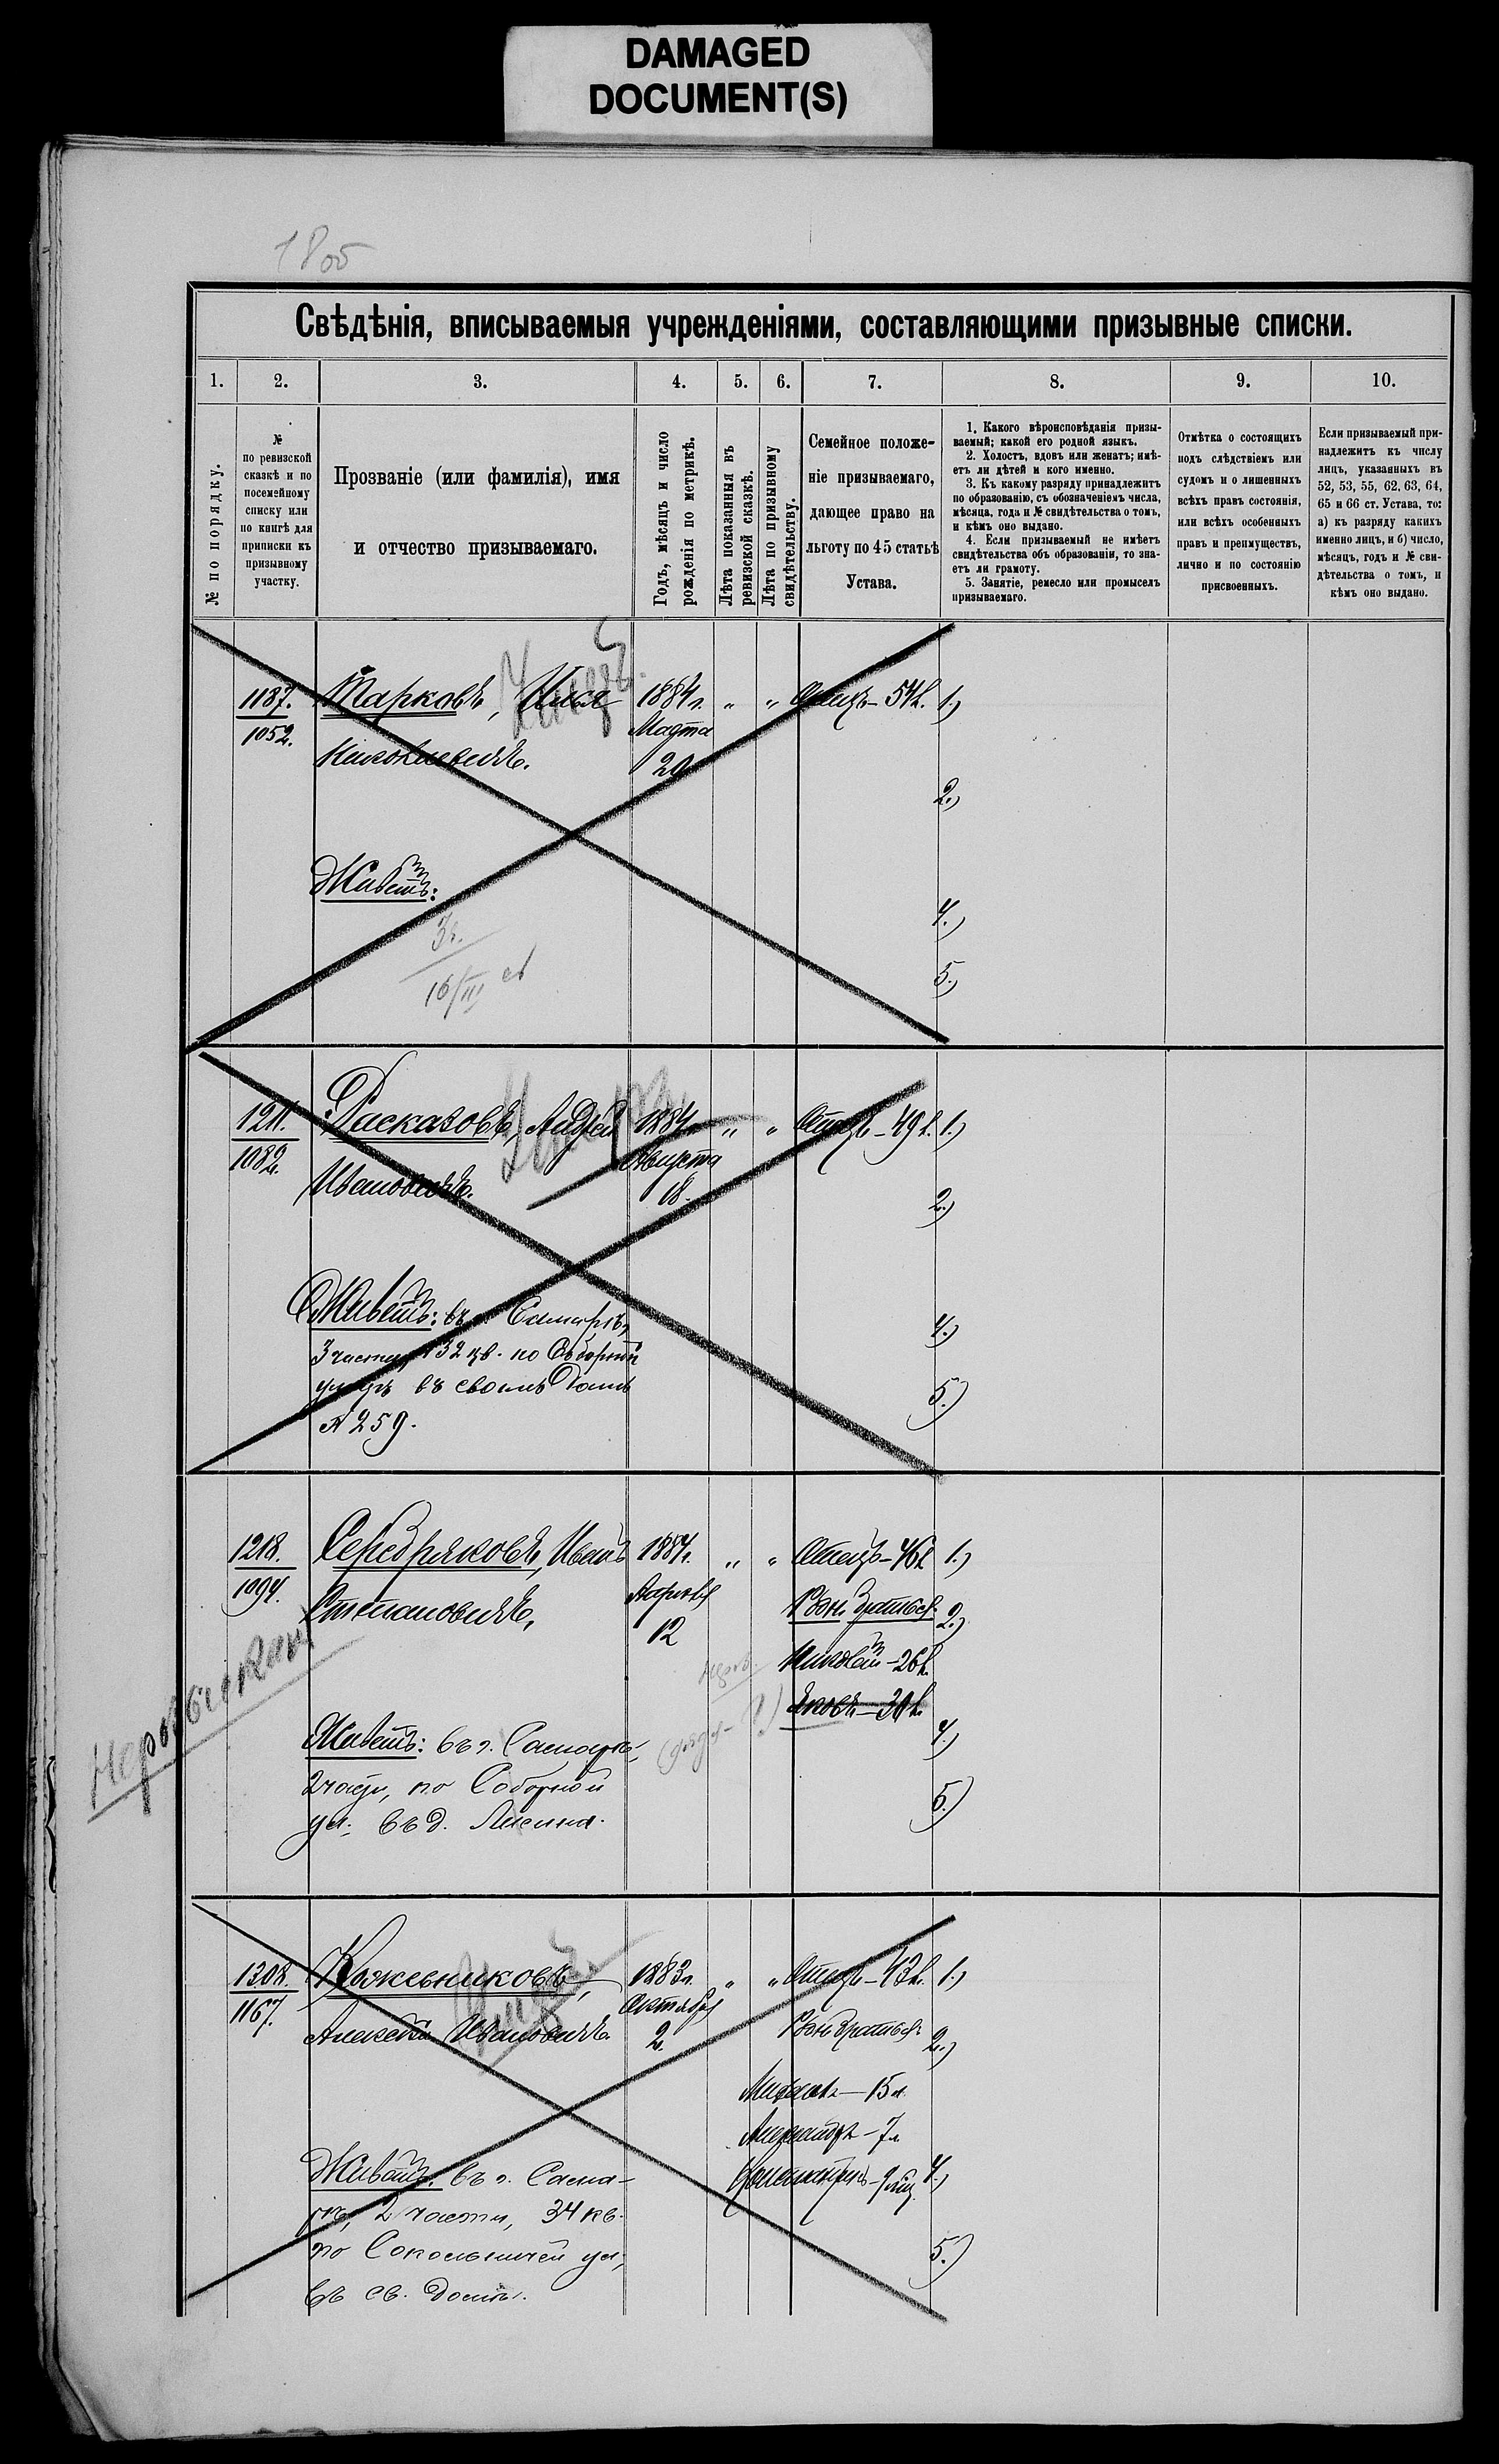 DAMAGED
DOCUMENT(S)
Свѣдѣнія, вписываемыя учрежденіями, составляющими призывные списки.
1. 2. 3. 4. 5. 6. 7. 8. 9. 10.
№ по порядку.
№
по ревизской
сказкѣ и по
посемейному
списку или
по книгѣ для
приписки къ
призывному
участку.
Прозваніе (или фамилія), имя
и отчество призываемаго.
Годъ, мѣсяцъ и число
рожденія по метрикѣ.
Лѣта показанныя въ
ревизской сказкѣ.
Лѣта по призывному
свидѣтельству.
Семейное положе-
ніе призываемаго,
дающее право на
льготу по 45 статьѣ
Устава.
1. Какого вѣроисповѣданія призы-
ваемый; какой его родной языкъ.
2. Холостъ, вдовъ или женатъ; имѣ-
етъ ли дѣтей и кого именно.
3. Къ какому разряду принадлежитъ
по образованію, съ обозначеніемъ числа,
мѣсяца, года и № свидѣтельства о томъ,
и кѣмъ оно выдано.
4. Если призываемый не имѣетъ
свидѣтельства объ образованіи, то зна-
етъ ли грамоту.
5. Занятіе, ремесло или промыселъ
призываемаго.
Отмѣтка о состоящихъ
подъ слѣдствіемъ или
судомъ и о лишенныхъ
всѣхъ правъ состоянія,
или всѣхъ особенныхъ
правъ и преимуществъ,
лично и по состоянію
присвоенныхъ.
Если призываемый при-
надлежитъ къ числу
лицъ, указанныхъ въ
52, 53, 55, 62, 63, 64,
65 и 66 ст. Устава, то:
а) къ разряду какихъ
именно лицъ, и б) число,
мѣсяцъ, годъ и № сви-
дѣтельства о томъ, и
кѣмъ оно выдано.
1187. Марковъ, Илья 1884 г. " " Отецъ - 54 л. 1.)
1052. Марта
20
2.)
Живетъ:
4.)
16/III
5.)
1211. Расказовъ, Андрей 1884 г. " " Отецъ - 49 л. 1.)
1082. Ивановичъ. Августа
18. 2.)
Живетъ: въ г. Самарѣ,
3 части, 132 кв. по Соборной
4.)
улицѣ въ своемъ домѣ
5.)
№ 259.
1218. Серебряковъ, Иванъ 1884 г. " " Отецъ - 46 л. 1.)
1094. Степановичъ, Апрѣля Родн. братья: 2.)
12
Николай - 26 л.
Яковъ - 20 л.
Неразысканъ
Живетъ: въ г. Самарѣ, 4.)
2 части, по Соборной
5.)
ул. въ д. Лисина.
1308. Кожевниковъ, 1883 г. " " Отецъ - 43 л. 1.)
1167. Алексѣй Ивановичъ. Октября Родн. братья:
2. 2.)
Михаилъ - 15 л.
Александръ - 7 л.
Живетъ: въ г. Сама- 4.)
рѣ, 2 части, 34 кв.
по Сокольничей ул, 5.)
въ св. домѣ.